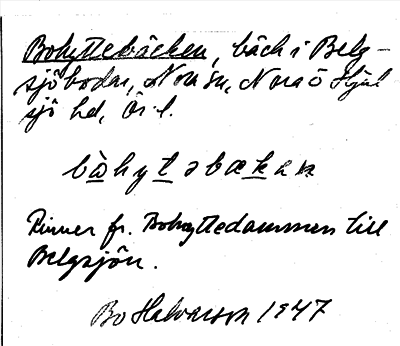 Bohyttebäcken, bäck i Belg-
sjöbodar, Nora sn, Nora o Hjul
sjö hd, Ör. l.
bo̲hyt̲əbæk̲en
Rinner fr. Bohyttedammen till
Belgsjön.
Bo Halvarson 1947